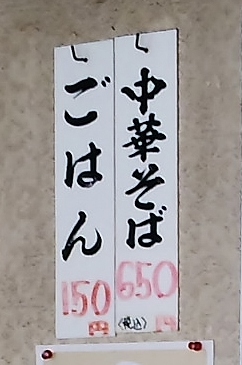 中華そば
650
(税込)円
ごはん
150
円